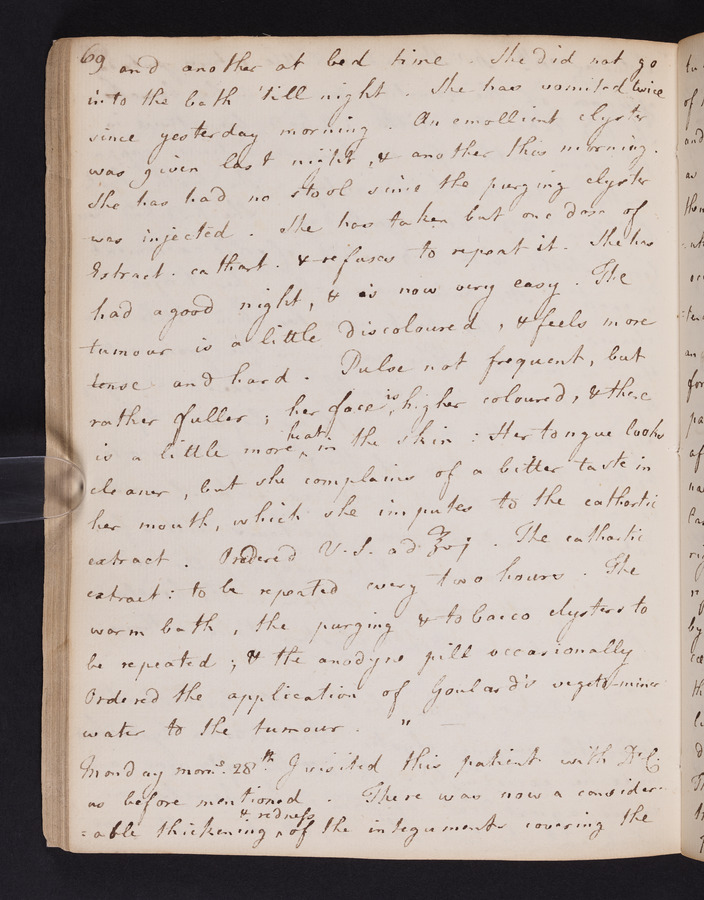 69 and another at bed time. She did not go
into the bath 'till night. She has vomited twice
since yesterday morning. An emollient clyster
was given last night, & another this morning.
She has had no stool since the purging clyster
was injected. She has taken but one dose of
Extract. cathart. & refuses to repeat it. She has
had a good night, & is now very easy. The
tumour is a little discoloured, & feels more
tense and hard. Pulse not frequent, but
rather fuller; her face is higher coloured, & there
is a little more heat in the skin: Her tongue looks
cleaner, but she complains of a bitter taste in
her mouth, which she imputes to the cathartic
extract. Ordered V.S. ad ℥vj. The cathartic
extract: to be repeated every two hours. The
warm bath, the purging & tobacco clysters to
be repeated; & the anodyne pill occasionally
Ordered the application of Goulard's vegeto-miner
water to the tumour. "
Monday morng. 28th. I visited this patient with Dr. C.
as before mentioned. There was now a consider-
=able thickening & redness of the integuments covering the